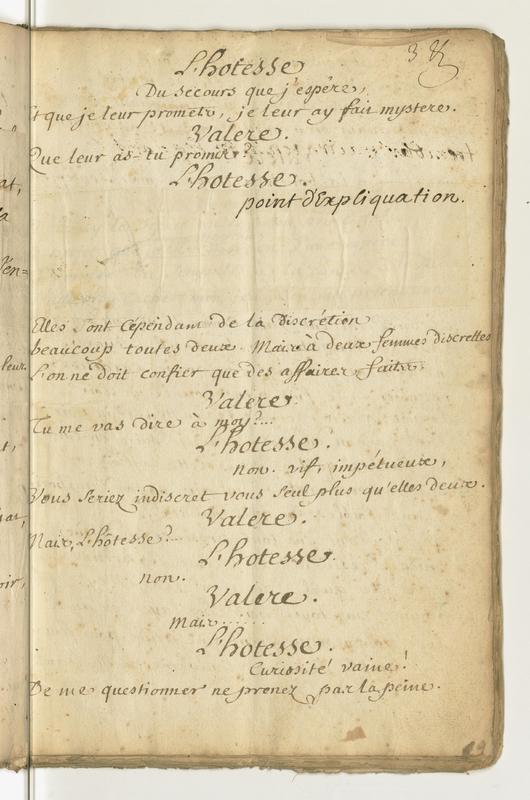 L'hotesse
Du secours que j'espère,
Et que je leur promets, je leur ay fait mystere.
Valere.
Que leur as-tu promis?
L'hotesse.
point d'Expliquation.
Elles sont cépendant de la Discrétion
beaucoup toutes deux. Mais à deux femmes discrettes
L'on ne doit confier que des affaires faites.
Valere.
Tu me vas dire à moy?...
L'hotesse.
non. vif, impétueux,
Vous seriez indiscret vous seul plus qu'elles deux.
Valere.
Mais, L'hôtesse?...
L'hotesse.
non.
Valere.
Mais......
L'hotesse.
Curiosité vaine!
De me questionner ne prenez pas la peine.
19